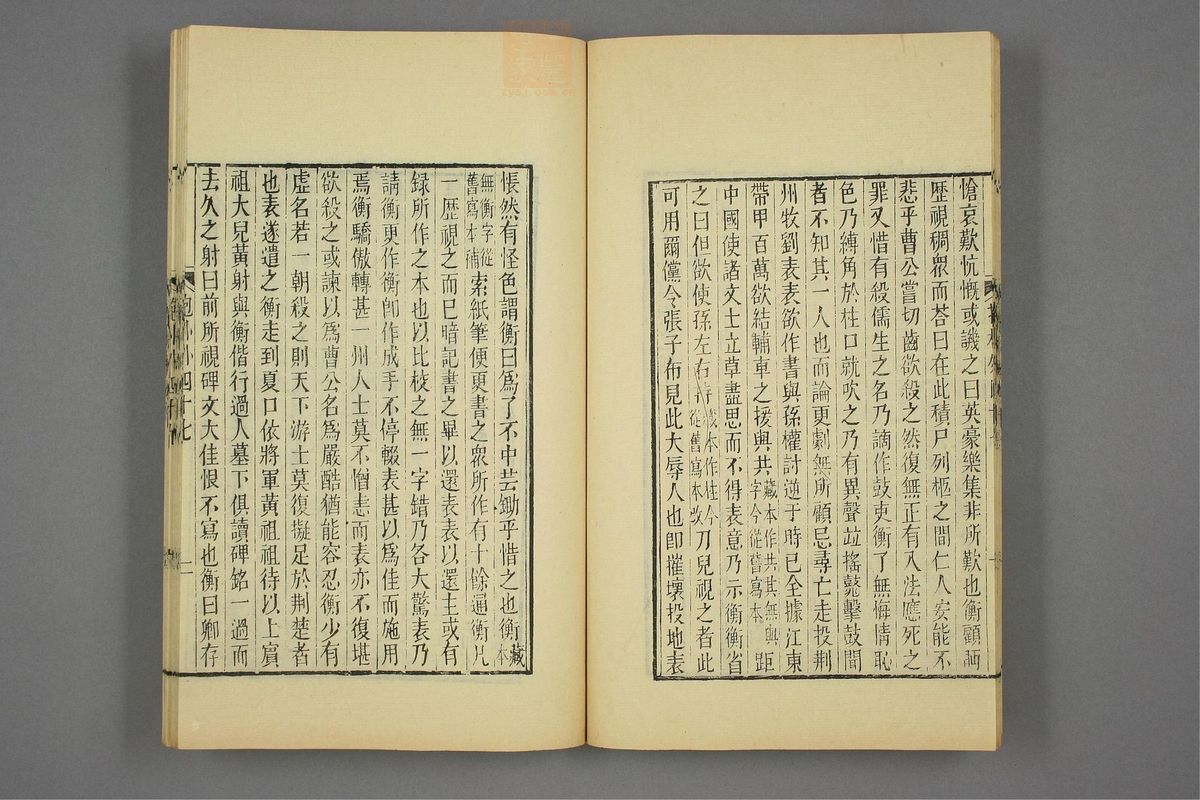 愴哀歎忼慨或譏之曰英豪樂集非所歎也衡顧眄
歷視稠衆而荅曰在此積尸列柩之間仁人安能不
悲乎曹公嘗切齒欲殺之然復無正有入法應死之
罪又惜有殺儒生之名乃謫作鼓吏衡了無悔情恥
色乃縛角於柱口就吹之乃有異聲竝搖鼗擊鼓聞
者不知其一人也而論更劇無所顧忌尋亡走投荆
州牧劉表表欲作書與孫權討逆于時已全據江東
帶甲百萬欲結輔車之援與共藏本作共其無與字今從舊寫本距
中國使諸文士立草盡思而不得表意乃示衡衡省
之曰但欲使孫左右持藏本作住今從舊寫本改刀兒視之者此
可用爾儻令張子布見此大辱人也卽摧壞投地表
悵然有怪色謂衡曰爲了不中芸鋤乎惜之也衡藏本
無衡字從舊寫本補索紙筆便更書之衆所作有十餘通衡凡
一歷視之而已暗記書之畢以還表表以還主或有
録所作之本也以比校之無一字錯乃各大驚表乃
請衡更作衡卽作成手不停輟表甚以爲佳而施用
焉衡驕傲轉甚一州人士莫不憎恚而表亦不復堪
欲殺之或諫以爲曹公名爲嚴酷猶能容忍衡少有
虛名若一朝殺之則天下游士莫復擬足於荆楚者
也表遂遣之衡走到夏口依將軍黃祖祖待以上賓
祖大兒黃射與衡偕行過人墓下俱讀碑銘一過而
去久之射曰前所視碑文大佳恨不寫也衡曰卿存
四十七
二